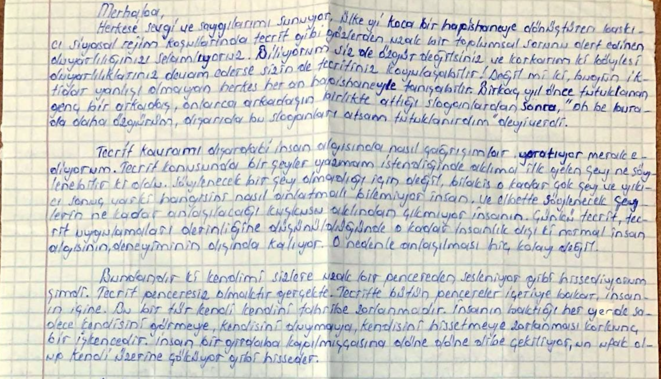 Merhaba,
Herkese sevgi ve saygılarımı sunuyor. Ülkeyi koca bir hapishaneye dönüştüren baskı-
cı siyasal rejim koşullarında tecrit gibi gözlerden uzak bir toplumsal sorunu dert edinen
duyarlılığınızı selamlıyoruz. Biliyorum siz de özgür değilsiniz ve korkarım ki böylesi
duyarlılıklarınız devam ederse sizin de tecritiniz koyulaşabilir! Değil mi ki, bugün ik-
tidar yanlısı olmayan herkes her an hapishaneyle tanışabilir. Birkaç yıl önce tutuklanan
genç bir arkadaş, onlarca arkadaşın birlikte attığı sloganlardan sonra, "oh be bura-
da daha özgürsün, dışarıda bu sloganları atsam tutuklanırdım" deyiverdi.
Tecrit kavramı dışardaki insan algısında nasıl çağrışımlar yaratıyor merak e-
diyorum. Tecrit konusunda bir şeyler yazmam istendiğinde aklıma ilk gelen şey ne söy-
lenebilir ki oldu. Söylenecek bir şey olmadığı için değil, bilakis o kadar çok şey ve yıkı-
cı sonuç var ki hangisini nasıl anlatmalı bilemiyor insan. Ve elbette söylenecek şey-
lerin ne kadar anlaşılacağı kuşkusu aklından çıkmıyor insanın. Çünkü tecrit, tec-
rit uygulamaları derinliğine düşünüldüğünde o kadar insanlık dışı ki normal insan
algısının, deneyiminin dışında kalıyor. O nedenle anlaşılması hiç kolay değil.
Bundandır ki kendimi sizlere uzak bir pencereden sesleniyor gibi hissediyorum
şimdi. Tecrit penceresiz olmaktır gerçekte. Tecritte bütün pencereler içeriye bakar, insan-
ın içine. Bu bir tür kendi kendini tahribe zorlanmadır. İnsanın baktığı her yerde sa-
dece kendisini görmeye, kendisini duymaya, kendisini hissetmeye zorlanması korkunç
bir işkencedir. İnsan bir girdaba kapılmışçasına döne döne dibe çekiliyor, un ufak ol-
up kendi üzerine çöküyor gibi hisseder.